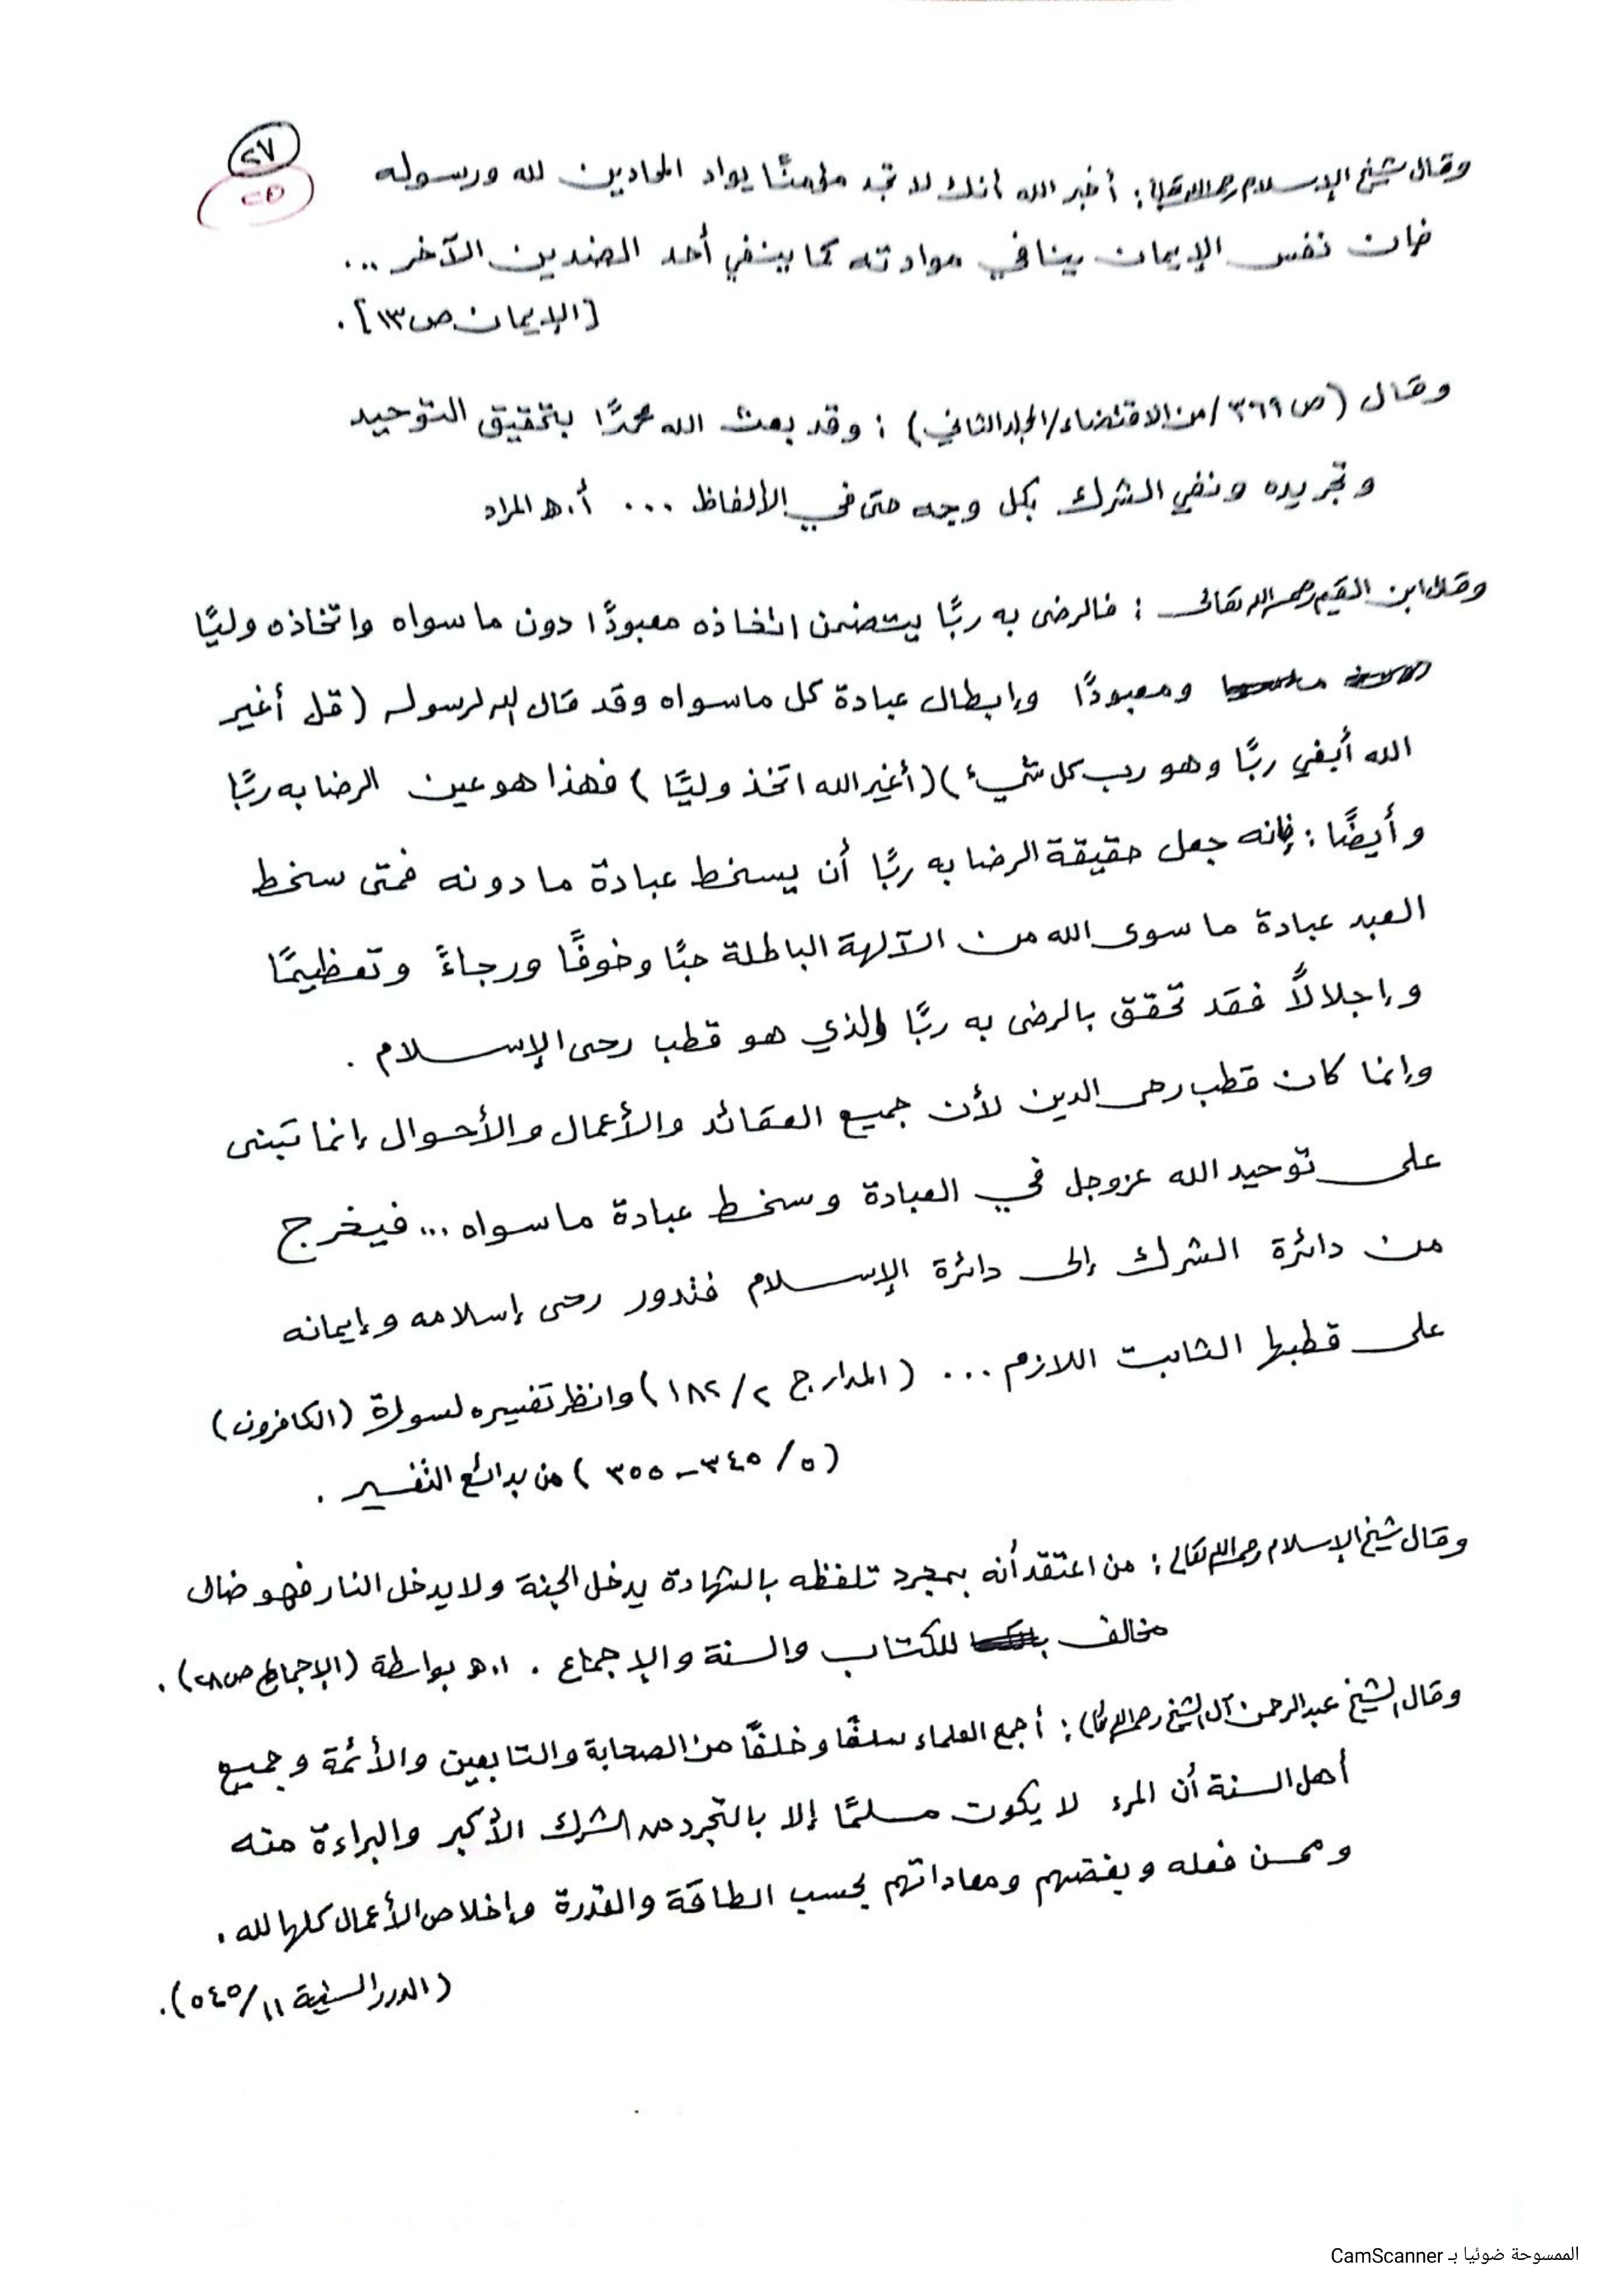 ٢٧
٢٥
وقال شيخ الإسلام رحمه الله تعالى : أخبر الله انك لا تجد مؤمنًا يواد المحادين لله ورسوله
فإن نفس الإيمان ينافي موادته كما ينفي أحد الضدين الآخر ...
[الإيمان ص١٣] .
وقال (ص ٣٦٩ / من الاقتضاء / المجلد الثاني) : وقد بعث الله محمدًا بتحقيق التوحيد
وتجريده ونفي الشرك بكل وجه حتى في الألفاظ ... أ.هـ المراد
وقال ابن القيم رحمه الله تعالى : فالرضى به ربًّا يتضمن اتخاذه معبودًا دون ما سواه واتخاذه وليًّا
ومعبودًا وإبطال عبادة كل ماسواه وقد قال الله لرسوله (قل أغير
الله أبغي ربًّا وهو رب كل شيء) (أغير الله اتخذ وليًّا) فهذا هو عين الرضا به ربًّا
وأيضًا : فإنه جعل حقيقة الرضا به ربًّا أن يسخط عبادة ما دونه فمتى سخط
العبد عبادة ما سوى الله من الآلهة الباطلة حبًّا وخوفًا ورجاءً وتعظيمًا
وإجلالاً فقد تحقق بالرضى به ربًّا الذي هو قطب رحى الإسلام .
وإنما كان قطب رحى الدين لأن جميع العقائد والأعمال والأحوال إنما تبنى
على توحيد الله عزوجل في العبادة وسخط عبادة ماسواه ... فيخرج
من دائرة الشرك إلى دائرة الإسلام فتدور رحى إسلامه وإيمانه
على قطبها الثابت اللازم ... (المدارج ٢/ ١٨٢) وانظر تفسيره لسورة (الكافرون)
(٥/ ٣٤٥ - ٣٥٥) من بدائع التفسير .
وقال شيخ الإسلام رحمه الله تعالى : من اعتقد أنه بمجرد تلفظه بالشهادة يدخل الجنة ولا يدخل النار فهو ضال
مخالف للكتاب والسنة والإجماع . ا.هـ بواسطة (الإجماع ص٢٨) .
وقال الشيخ عبدالرحمن آل الشيخ رحمه الله تعالى : أجمع العلماء سلفًا وخلفًا من الصحابة والتابعين والأئمة وجميع
أهل السنة أن المرء لا يكون مسلمًا إلا بالتجرد من الشرك الأكبر والبراءة منه
وممن فعله وبغضهم ومعاداتهم بحسب الطاقة والقدرة وإخلاص الأعمال كلها لله .
(الدرر السنية ١١/ ٥٤٥) .
الممسوحة ضوئيا بـ CamScanner